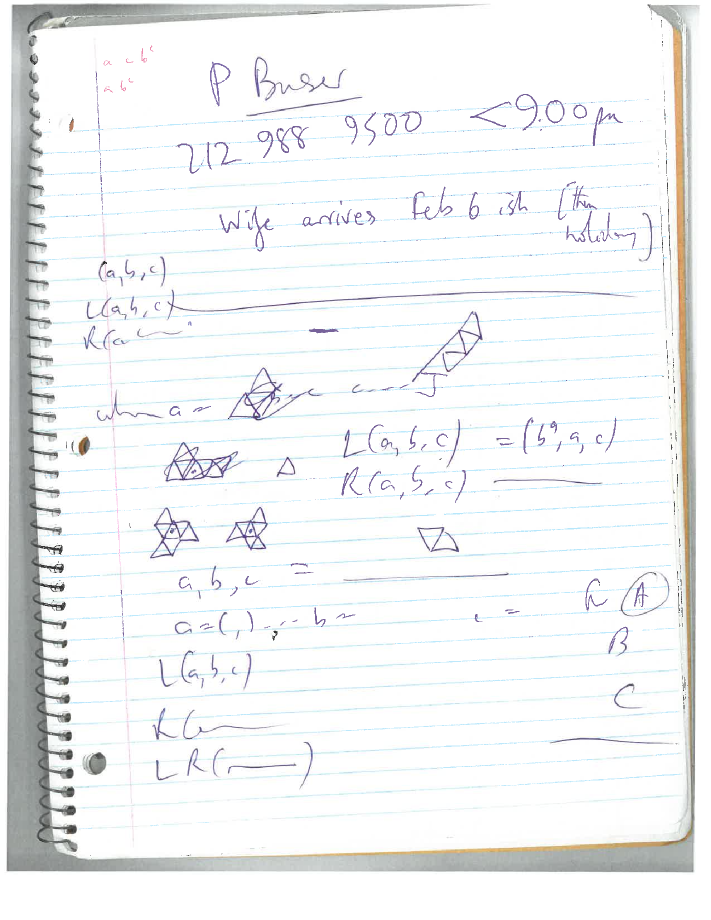 a c b^c
a b^c
P Buser
212 988 9500 <9.00 pm
Wife arrives Feb 6 ish [then
holiday]
(a, b, c)
L(a, b, c)
R(a
when a =
L(a, b, c) = (b^a, a, c)
R(a, b, c)
a, b, c =
a = ( , ) b = c =
A
B
L(a, b, c)
C
R(
LR( )